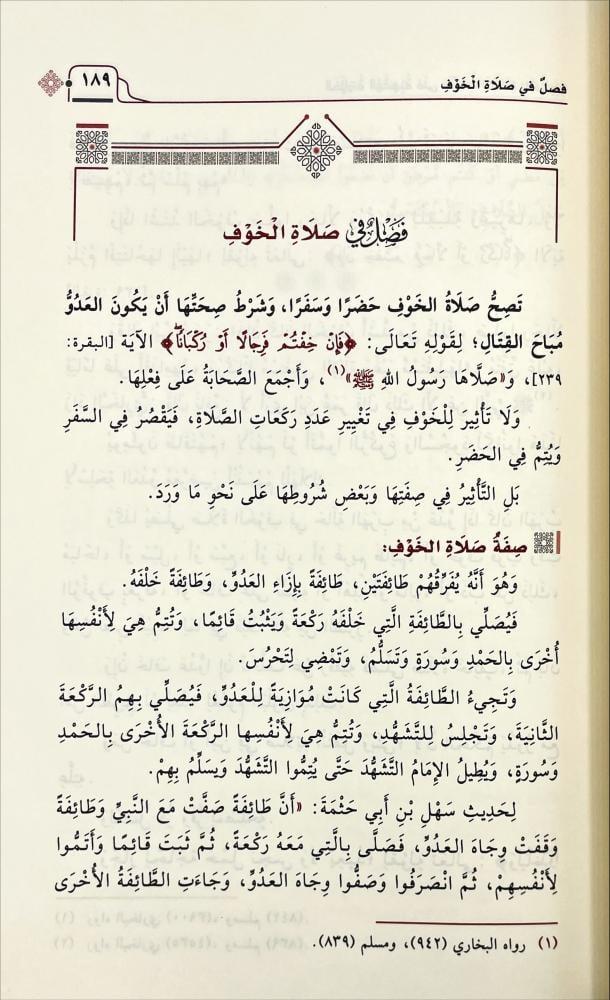 فصلٌ في صَلَاةِ الْخَوْفِ
١٨٩
فَصْلٌ فِي صَلَاةِ الْخَوْفِ
تَصِحُّ صَلَاةُ الخَوْفِ حَضَرًا وَسَفَرًا، وَشَرْطُ صِحَّتِهَا أَنْ يَكُونَ العَدُوُّ
مُبَاحَ القِتَالِ؛ لِقَوْلِهِ تَعَالَى: ﴿فَإِنْ خِفْتُمْ فَرِجَالًا أَوْ رُكْبَانًا﴾ الآيَةَ [البقرة:
٢٣٩]، وَ«صَلَّاهَا رَسُولُ اللهِ ﷺ»(١)، وَأَجْمَعَ الصَّحَابَةُ عَلَى فِعْلِهَا.
وَلَا تَأْثِيرَ لِلْخَوْفِ فِي تَغْيِيرِ عَدَدِ رَكَعَاتِ الصَّلَاةِ، فَيَقْصُرُ فِي السَّفَرِ
وَيُتِمُّ فِي الحَضَرِ.
بَلِ التَّأْثِيرُ فِي صِفَتِهَا وَبَعْضِ شُرُوطِهَا عَلَى نَحْوِ مَا وَرَدَ.
صِفَةُ صَلَاةِ الخَوْفِ:
وَهُوَ أَنَّهُ يُفَرِّقُهُمْ طَائِفَتَيْنِ، طَائِفَةً بِإِزَاءِ العَدُوِّ، وَطَائِفَةً خَلْفَهُ.
فَيُصَلِّي بِالطَّائِفَةِ الَّتِي خَلْفَهُ رَكْعَةً وَيَثْبُتُ قَائِمًا، وَتُتِمُّ هِيَ لِأَنْفُسِهَا
أُخْرَى بِالحَمْدِ وَسُورَةٍ وَتَسَلِّمُ، وَتَمْضِي لِتَحْرُسَ.
وَتَجِيءُ الطَّائِفَةُ الَّتِي كَانَتْ مُوَازِيَةً لِلْعَدُوِّ، فَيُصَلِّي بِهِمُ الرَّكْعَةَ
الثَّانِيَةَ، وَتَجْلِسُ لِلتَّشَهُّدِ، وَتُتِمُّ هِيَ لِأَنْفُسِها الرَّكْعَةَ الأُخْرَى بِالحَمْدِ
وَسُورَةٍ، وَيُطِيلُ الإِمَامُ التَّشَهُّدَ حَتَّى يُتِمُّوا التَّشَهُّدَ وَيَسَلِّمُ بِهِمْ.
لِحَدِيثِ سَهْلِ بْنِ أَبِي حَثْمَةَ: «أَنَّ طَائِفَةً صَفَّتْ مَعَ النَّبِيِّ وَطَائِفَةً
وَقَفَتْ وِجَاهَ العَدُوِّ، فَصَلَّى بِالَّتِي مَعَهُ رَكْعَةً، ثُمَّ ثَبَتَ قَائِمًا وَأَتَمُّوا
لِأَنْفُسِهِمْ، ثُمَّ انْصَرَفُوا وَصَفُّوا وِجَاهَ العَدُوِّ، وَجَاءَتِ الطَّائِفَةُ الأُخْرَى
(١) رواه البخاري (٩٤٢)، ومسلم (٨٣٩).